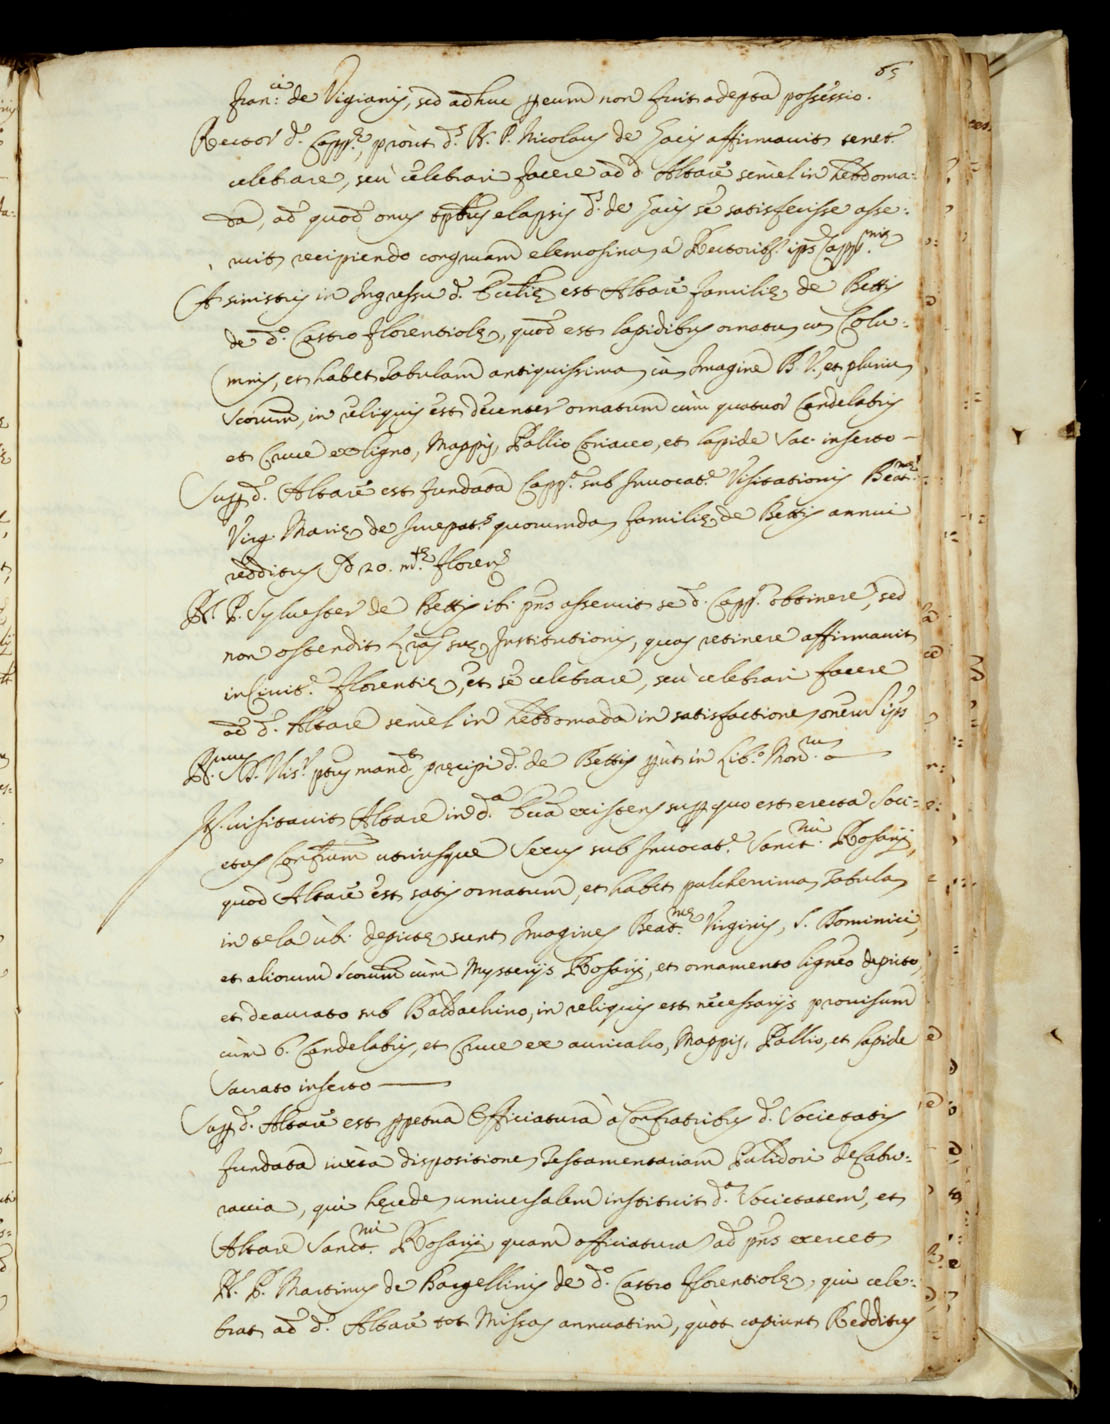 65
Fran:ci de Vigianis, sed adhuc per eum non fuit adepta possessio.
Rector d. Capp.e, prout d.s R. P. Nicolaus de Gaciis affirmavit tenet.r
celebrare, seù celebrari facere ad d. Altare semèl in hebdoma:
da, ad quod onus tptbus elapsis d.s de Gaciis se satisfecisse asse:
ruit recipiendo congruam elemosinam à Rectorib.s ips Capp.nis
A sinistris in Ingressu d. Ecclię est Altare familię de Bettis
de d.o Castro Florentiolę, quod est lapidibus ornatum cù Colu:
mnis, et habet Tabulam antiquissimam cù Imagine B. V., et plurium
Scorum, in reliquis est decenter ornatum cùm quatuor Candelabris
et Cruce ex ligno, Mappis, Pallio Coriaceo, et lapide Sac. inserto –
Sup. d. Altare est fundata Capp.a sub Invocat.e Visitationis Beat.mę
Virg. Marię de Iurepat.s quorumdam familię de Bettis annui
redditus 20. m.tę Floren.
R. P. Sylvester de Bettis ibi pns asseruit se d. Capp. obtinere, sed
non ostendit Lras suę Institutionis, quas retinere affirmavit
in Civit.e Florentię, et se celebrare, seù celebrari facere
ad d. Altare semèl in hebdomada in satisfactionem onerum ips
R.mus D. Vis.r ptus mand. pręcipi d. de Bettis put in Lib.o Mon.
It. visitavit Altare in d.a Eccla existens supr quo est erecta Soci:
etas Confrum utriusque Sexus sub Invocat.e Sanct.mi Rosarij,
quod Altare est satis ornatum, et habet pulcherrimam Tabulam
in tela ubi depictę sunt Imagines Beat.mę Virginis, S. Dominici,
et aliorum Scorum cùm Mysterijs Rosarij, et ornamento ligneo depicto,
et deaurato sub Baldachino, in reliquis est necessarijs provisum
cùm 6. Candelabris, et Cruce ex auricalco, Mappis, Pallio, et lapide
Sacrato inserto
Sup. d. Altare est ppetua Officiatura à Confratribus d. Societatis
fundata iuxta dispositionem Testamentariam Pulidori de Cabu:
raccia, qui hęredem universalem instituit d.a Societatem, et
Altare Sanct.mi Rosarij quam officiaturam ad pns exercet
R. P. Martinus de Bargellinis de d.o Castro Florentiolę, qui cele:
brat ad d. Altare tot Missas annuatim, quot capiunt Redditus